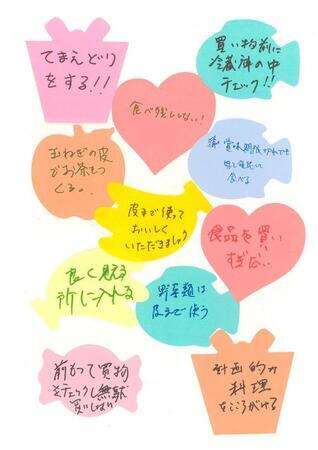 てまえどり
をする!!
買い物前に
冷蔵庫の中
チェック!!
食べ残ししない!
玉ねぎの皮
でお茶をつ
くる。
賞味期限切れでも
食べる
皮まで使って
おいしく
いただきましょう
食品を買い
すぎない
良く見える
所に入れる
野菜類は
皮まで使う
前もって買物
をチェックし無駄
買いしない
計画的な
料理
を心がける